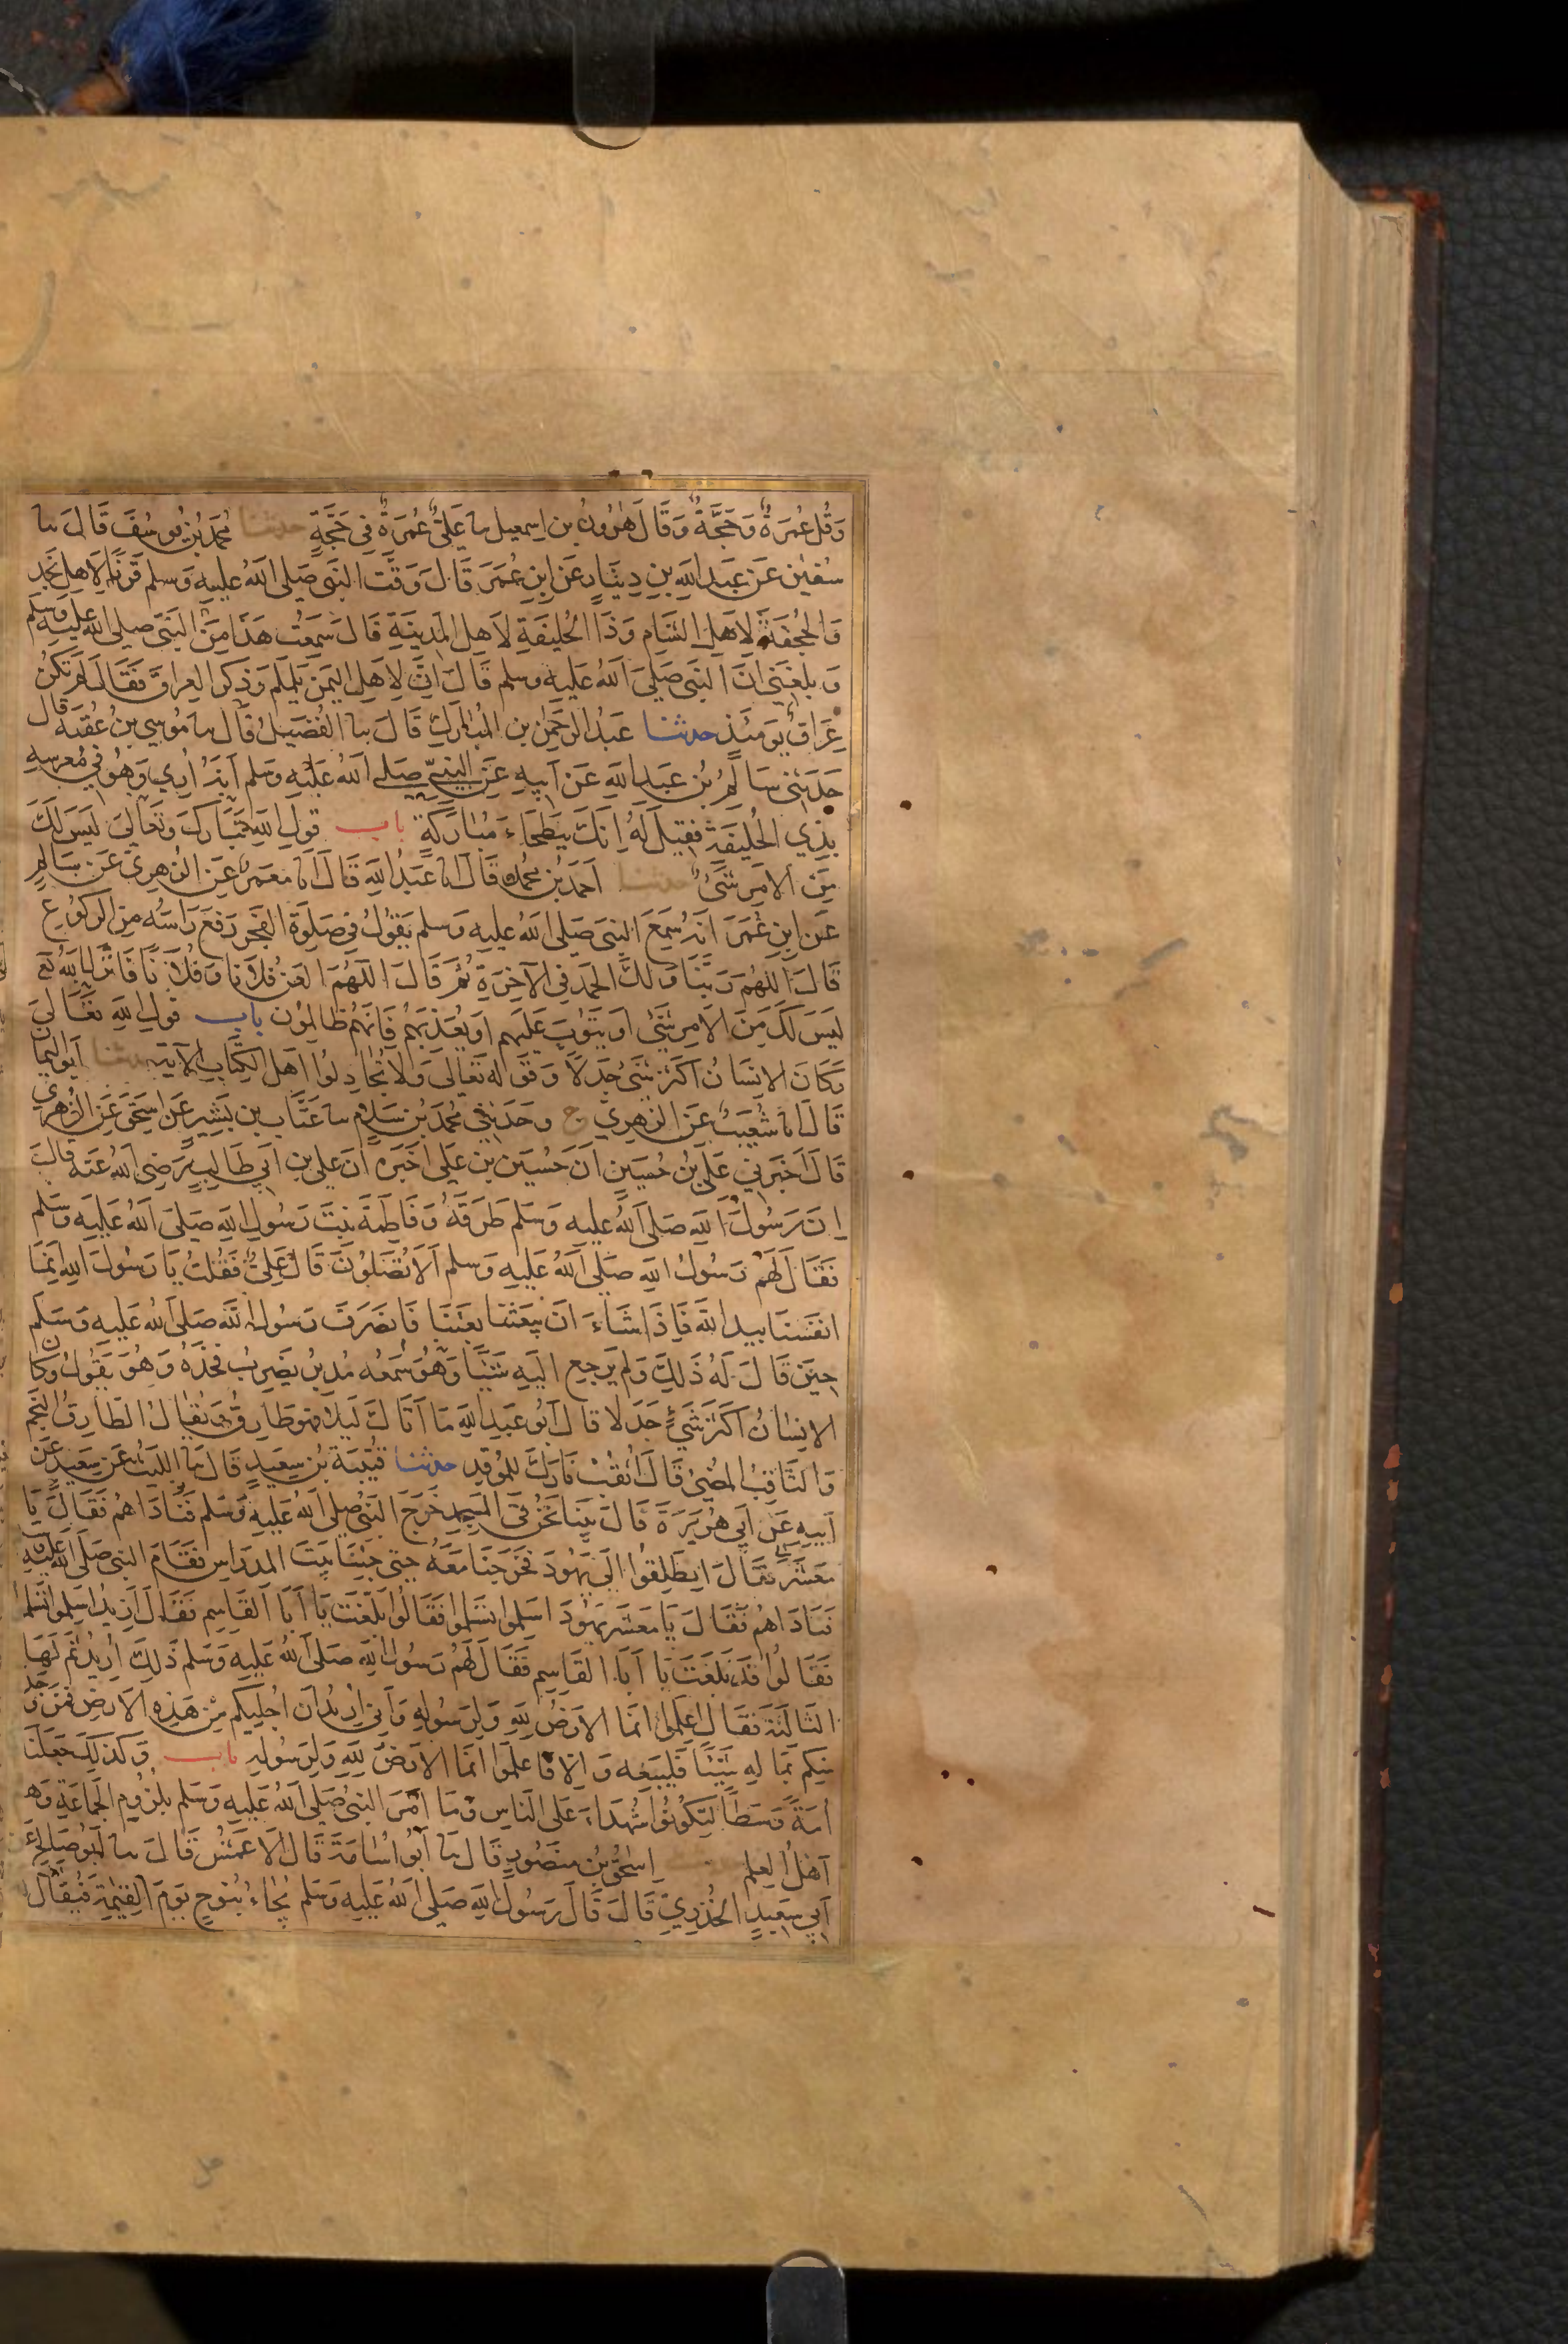 وَقُل عُمرَةٌ وَحَجَّةٌ وَقَالَ هٰرُونُ بن اِسمعيل سا عَلىٌّ عُمرَةٌ فِى حَجَّةٍ حدثنا مُحمَدُ بنُ يُوسُفَ قَالَ سا
سُفيٰن عَن عَبدِ اللّٰهِ بنِ دِينَارٍ عَن ابنِ عُمَرَ قَالَ وَقَّتَ النَبّى صَلى اللّٰهُ عليهِ وَسلم قَرنًا لِاَهلِ نَجدٍ
وَالجُحفَةَ لِاَهلِ الشَامِ وَذَا الحُلَيفَةِ لِاَهلِ المَدِينَةِ قَالَ سَمِعتُ هَذَا مِنَ النَبّى صَلى اللّٰه عليهِ وسلم
وَبلغَنِى اَنَ النَبّى صَلىَ اَللّٰهُ عَليهِ وسلم قَالَ اِنَّ لِاَهلِ اليَمَنِ يَلَملَم وَذُكِرَ العِراقُ فَقَالَ لَم تَكُن
عِرَاقٌ يَومَئِذٍ حدثنا عَبدُ الرَحمٰنِ بن المُبَارَكِ قَالَ سا الفُضَيلُ قَالَ سا مُوسىَ بنُ عُقبَه قال
حَدَثَنى سَالِمُ بُن عَبدِ اللّٰهِ عَن اَبيهِ عَنِ النَبىّ صَلى اَللّٰهُ عَلَيهِ وَسَلم اَنَهُ اُرِىَ وَهُوَ فِى مُعَرسِهِ
بِذِى الحُلَيفَةِ فَقِيلَ لَهُ اِنَكَ بِبَطحَاءَ مُبَارَكَةٍ باب قَولِ اللّٰهِ تَبَارَكَ وَتَعَالىَ لَيسَ لَكَ
مِنَ الامرِ شَىءٌ حدثنا اَحمَدُ بن مُحمَد قَالَ انا عَبدُ اللّٰهِ قَالَ انَا مَعمَرٌ عَنِ الزُهرِى عَن سَالِمٍ
عَن ابنِ عُمَرَ اَنَهُ سَمِعَ النبىَ صَلى اللّٰهُ عليهِ وَسلم يَقُولُ فِى صَلٰوةِ الفَجرِ رَفَعَ رَاسَهُ مِنَ الرُكُوع
قَالَ اللّٰهُمَ رَبَّنَا وَلَكَ الحَمدُ فِى الآخِرَةِ ثُم قَالَ اللّٰهُمَ العَن فُلَانًا وَفُلَانًا فَانزَلَ اللّٰهُ تع
لَيسَ لَكَ مِنَ الاَمرِ شَئٌ اَو يَتُوبَ عَلَيهِم اَو يُعَذِبَهُم فَاِنَهُم ظَالِمُون باب قولِ اللّٰهِ تَعَالىَ
وَكَانَ الانسَانُ اَكثرَ شَىءٍ جَدَلًا وَقَولِهِ تَعَالىَ وَلَا تُجَادِلُوا اَهلَ الكِتَابِ الآيَةِ حدثنا اَبُو اليمان
قَالَ انا شُعَيبٌ عَنِ الزهرِى ح وَحَدَثَنِى مُحَمَدُ بن سَلَام سا عَتَّاب بن بَشِيرٍ عَن اِسحٰقَ عَنِ الزُهرِى
قَالَ اَخبَرنِى عَلىُ بنُ حُسَينٍ اَنَ حُسَينَ بن عَلىٍ اَخبَرَه اَنَ عَلىَ بن اَبِى طَالِبٍ رَضِىَ اللّٰهُ عَنه قَالَ
اِنَ رَسُولَ اللّٰهِ صَلى اَللّٰهُ عليهِ وَسلم طَرَقَهُ وَفَاطِمَةَ بِنتَ رَسُولِ اللّٰهِ صَلىَ اَللّٰهُ عَليهِ وَسَلم
فَقَالَ لَهُم رَسُولُ اللّٰهِ صَلى اَللّٰهُ عَليهِ وَسلم اَلَا تُصَلُونَ قَالَ عَلِىٌ فَقُلتُ يَا رَسُولَ اللّٰهِ اِنَمَا
انفُسُنَا بِيدِ اللّٰهِ فَاِذَا شَاءَ اَن يَبعَثَنَا بَعَثَنَا فَانصَرَفَ رَسُولُ اللّٰهِ صَلىَ اللّٰهُ عَليهِ وَسَلَم
حِينَ قَالَ لَهُ ذَلِكَ وَلَم يَرجِع اِلَيهِ شَيئًا وَهُوَ سَمِعَه مُدبِرٌ يَضرِبُ فَخذَهُ وَهُوَ يَقُولُ وَكَان
الانِسٰانُ اَكثَرَ شَىءٍ جَدَلًا قَالَ اَبُو عَبدِ اللّٰهِ مَا اَتَاكَ لَيلًا فهوَ طَارِقٌ وَيُقَالُ الطَارِقُ النَجمُ
وَالثَاقِبُ المُضِئُ يُقَالُ اَثقِب نَارَكَ لِلمُوقِدِ حدثنا قُتَيبَةُ بن سعَيدٍ قَالَ سَا الليثُ عَن سَعِيدٍ عَن
اَبيهِ عَن اَبِى هُرَيرَةَ قَالَ بَينَا نَحنُ فِى المَسجِدِ خَرَجَ النَبىُ صَلى اللّٰهُ عَليهِ وَسَلم فَنَادَاهُم فَقَالَ يَا
مَعشَرَ فَقَالَ انطَلِقُوا اِلَى يَهُودَ فَخَرَجنَا مَعَهُ حَتى جِئنَا بَيتَ المدرَاس فَقَامَ النبى صَلى اللّٰه عليه
فَنَادَاهُم فَقَالَ يَا مَعشَرَ يَهُودَ اَسلِمُوا تَسلَمُوا فَقَالُوا بَلَّغتَ يَا اَبَا القَاسِم فَقَالَ اُرِيدُ اَسلِمُوا تَسلَمُوا
فَقَالُوا قَد بَلغَتَ يَا اَبَا القَاسِم فَقَالَ لَهُم رَسُولُ اللّٰهِ صَلى اَللّٰهُ عليهِ وَسَلم ذَلِكَ اُرِيدُ ثُم قَالَهَا
الثَالِثَةَ فَقَالَ اعلَمُوا انَمَا الاَرضُ لِلّٰهِ وَلِرَسُولِهِ وَاَنِى اُرِيدُ اَن اُجلِيَكُم مِن هَذِهِ الاَرضِ فَمَن وَجد
مِنكُم بمَالِهِ شَيئًا فَليَبِعه وَاِلَا فَاعلَمُوا انَمَا الارَضُ لِلّٰهِ وَلِرَسُولِهِ باب وَكذَلِكَ جَعَلنَا
اُمَةً وَسَطاً لِتَكُونُوا شُهَدَاءَ عَلى النَاسِ وَمَا اَمَرَ النبىُ صَلى اَللّٰهُ عَليهِ وَسَلم بِلزُومِ الجَمَاعَةِ وَهُم
اَهلُ العِلمِ اِسحٰقُ بنُ مَنصُورٍ قَالَ سَا اَبُو اُسَامَةَ قَالَ الاَعمَشُ قَالَ سا اَبُو صَالِحٍ عَن
اَبِى سَعِيدٍ الخُدرِىِ قَالَ قَالَ رَسُولُ اللّٰهِ صَلى اَللّٰهُ عَليهِ وَسَلم يُجَاءُ بِنُوحٍ يَومَ القِيٰمَةِ فَيُقَالُ